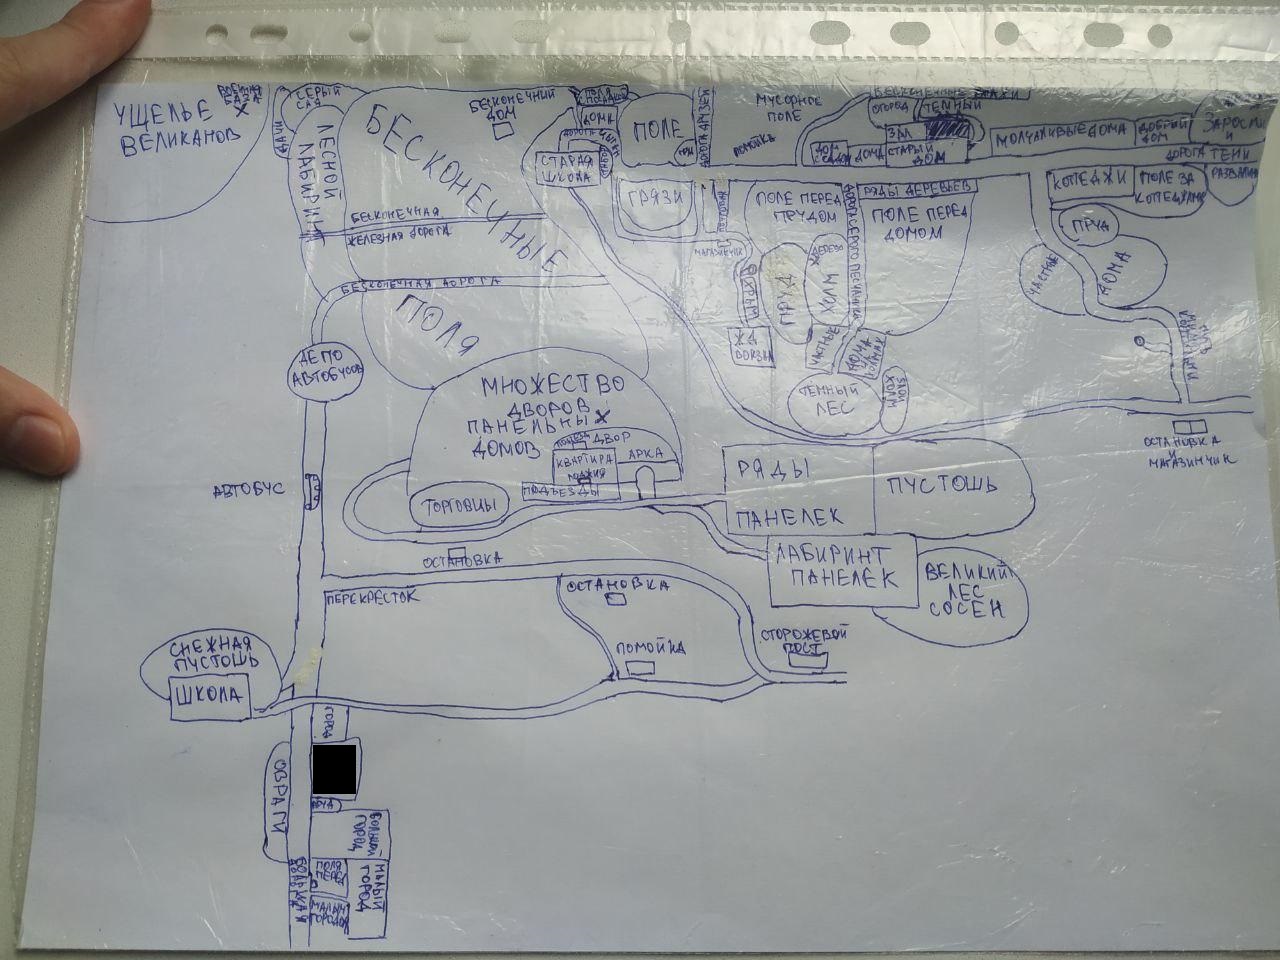 УЩЕЛЬЕ
ВЕЛИКАНОВ
ВОЕННАЯ
БАЗА
СЕРЫЙ
САД
ДАЧИ
ЛЕСНОЙ
ЛАБИРИНТ
БЕСКОНЕЧНЫЕ
ПОЛЯ
БЕСКОНЕЧНЫЙ
ДОМ
БЕСКОНЕЧНАЯ
ЖЕЛЕЗНАЯ ДОРОГА
БЕСКОНЕЧНАЯ ДОРОГА
СТАРАЯ
ШКОЛА
ДОМА
ПОЛЕ
ДОРОГА ДРУЗЕЙ
ГРЯЗИ
МУСОРНОЕ
ПОЛЕ
ПОМОЙКА
МАГАЗИНЧИК
ХРАМ
ЖД
ВОКЗАЛ
ОГОРОД
ТЕМНЫЙ
ЗАЛ
СТАРЫЙ
ДОМ
ДОМА
МОЛЧАЛИВЫЕ ДОМА
ДОБРЫЙ
ДОМ
ЗАРОСЛИ
ДОРОГА ТЕНИ
РАЗВАЛИНЫ
КОТЕДЖИ
ПОЛЕ ЗА
КОТЕДЖАМИ
ПРУД
ЧАСТНЫЕ
ДОМА
ПОЛЕ ПЕРЕД
ПРУДОМ
РЯДЫ ДЕРЕВЬЕВ
ПОЛЕ ПЕРЕД
ДОМОМ
ДЕРЕВО
ХОЛМ
ПРУД
ЧАСТНЫЕ
ДОМА
НА ХОЛМАХ
ТЕМНЫЙ
ЛЕС
ЗЛОЙ
ХОЛМ
ОСТАНОВКА
И
МАГАЗИНЧИК
ДЕПО
АВТОБУСОВ
АВТОБУС
МНОЖЕСТВО
ДВОРОВ
ПАНЕЛЬНЫХ
ДОМОВ
ДВОР
КВАРТИРА
ЛОДЖИЯ
ПОДЪЕЗДЫ
АРКА
ТОРГОВЦЫ
РЯДЫ
ПАНЕЛЕК
ПУСТОШЬ
ЛАБИРИНТ
ПАНЕЛЕК
ВЕЛИКИЙ
ЛЕС
СОСЕН
ОСТАНОВКА
ОСТАНОВКА
ПЕРЕКРЕСТОК
ПОМОЙКА
СТОРОЖЕВОЙ
ПОСТ
СНЕЖНАЯ
ПУСТОШЬ
ШКОЛА
ГОРОД
ОВРАГИ
БОЛЬШОЙ
ГОРОД
МАЛЫЙ
ГОРОД